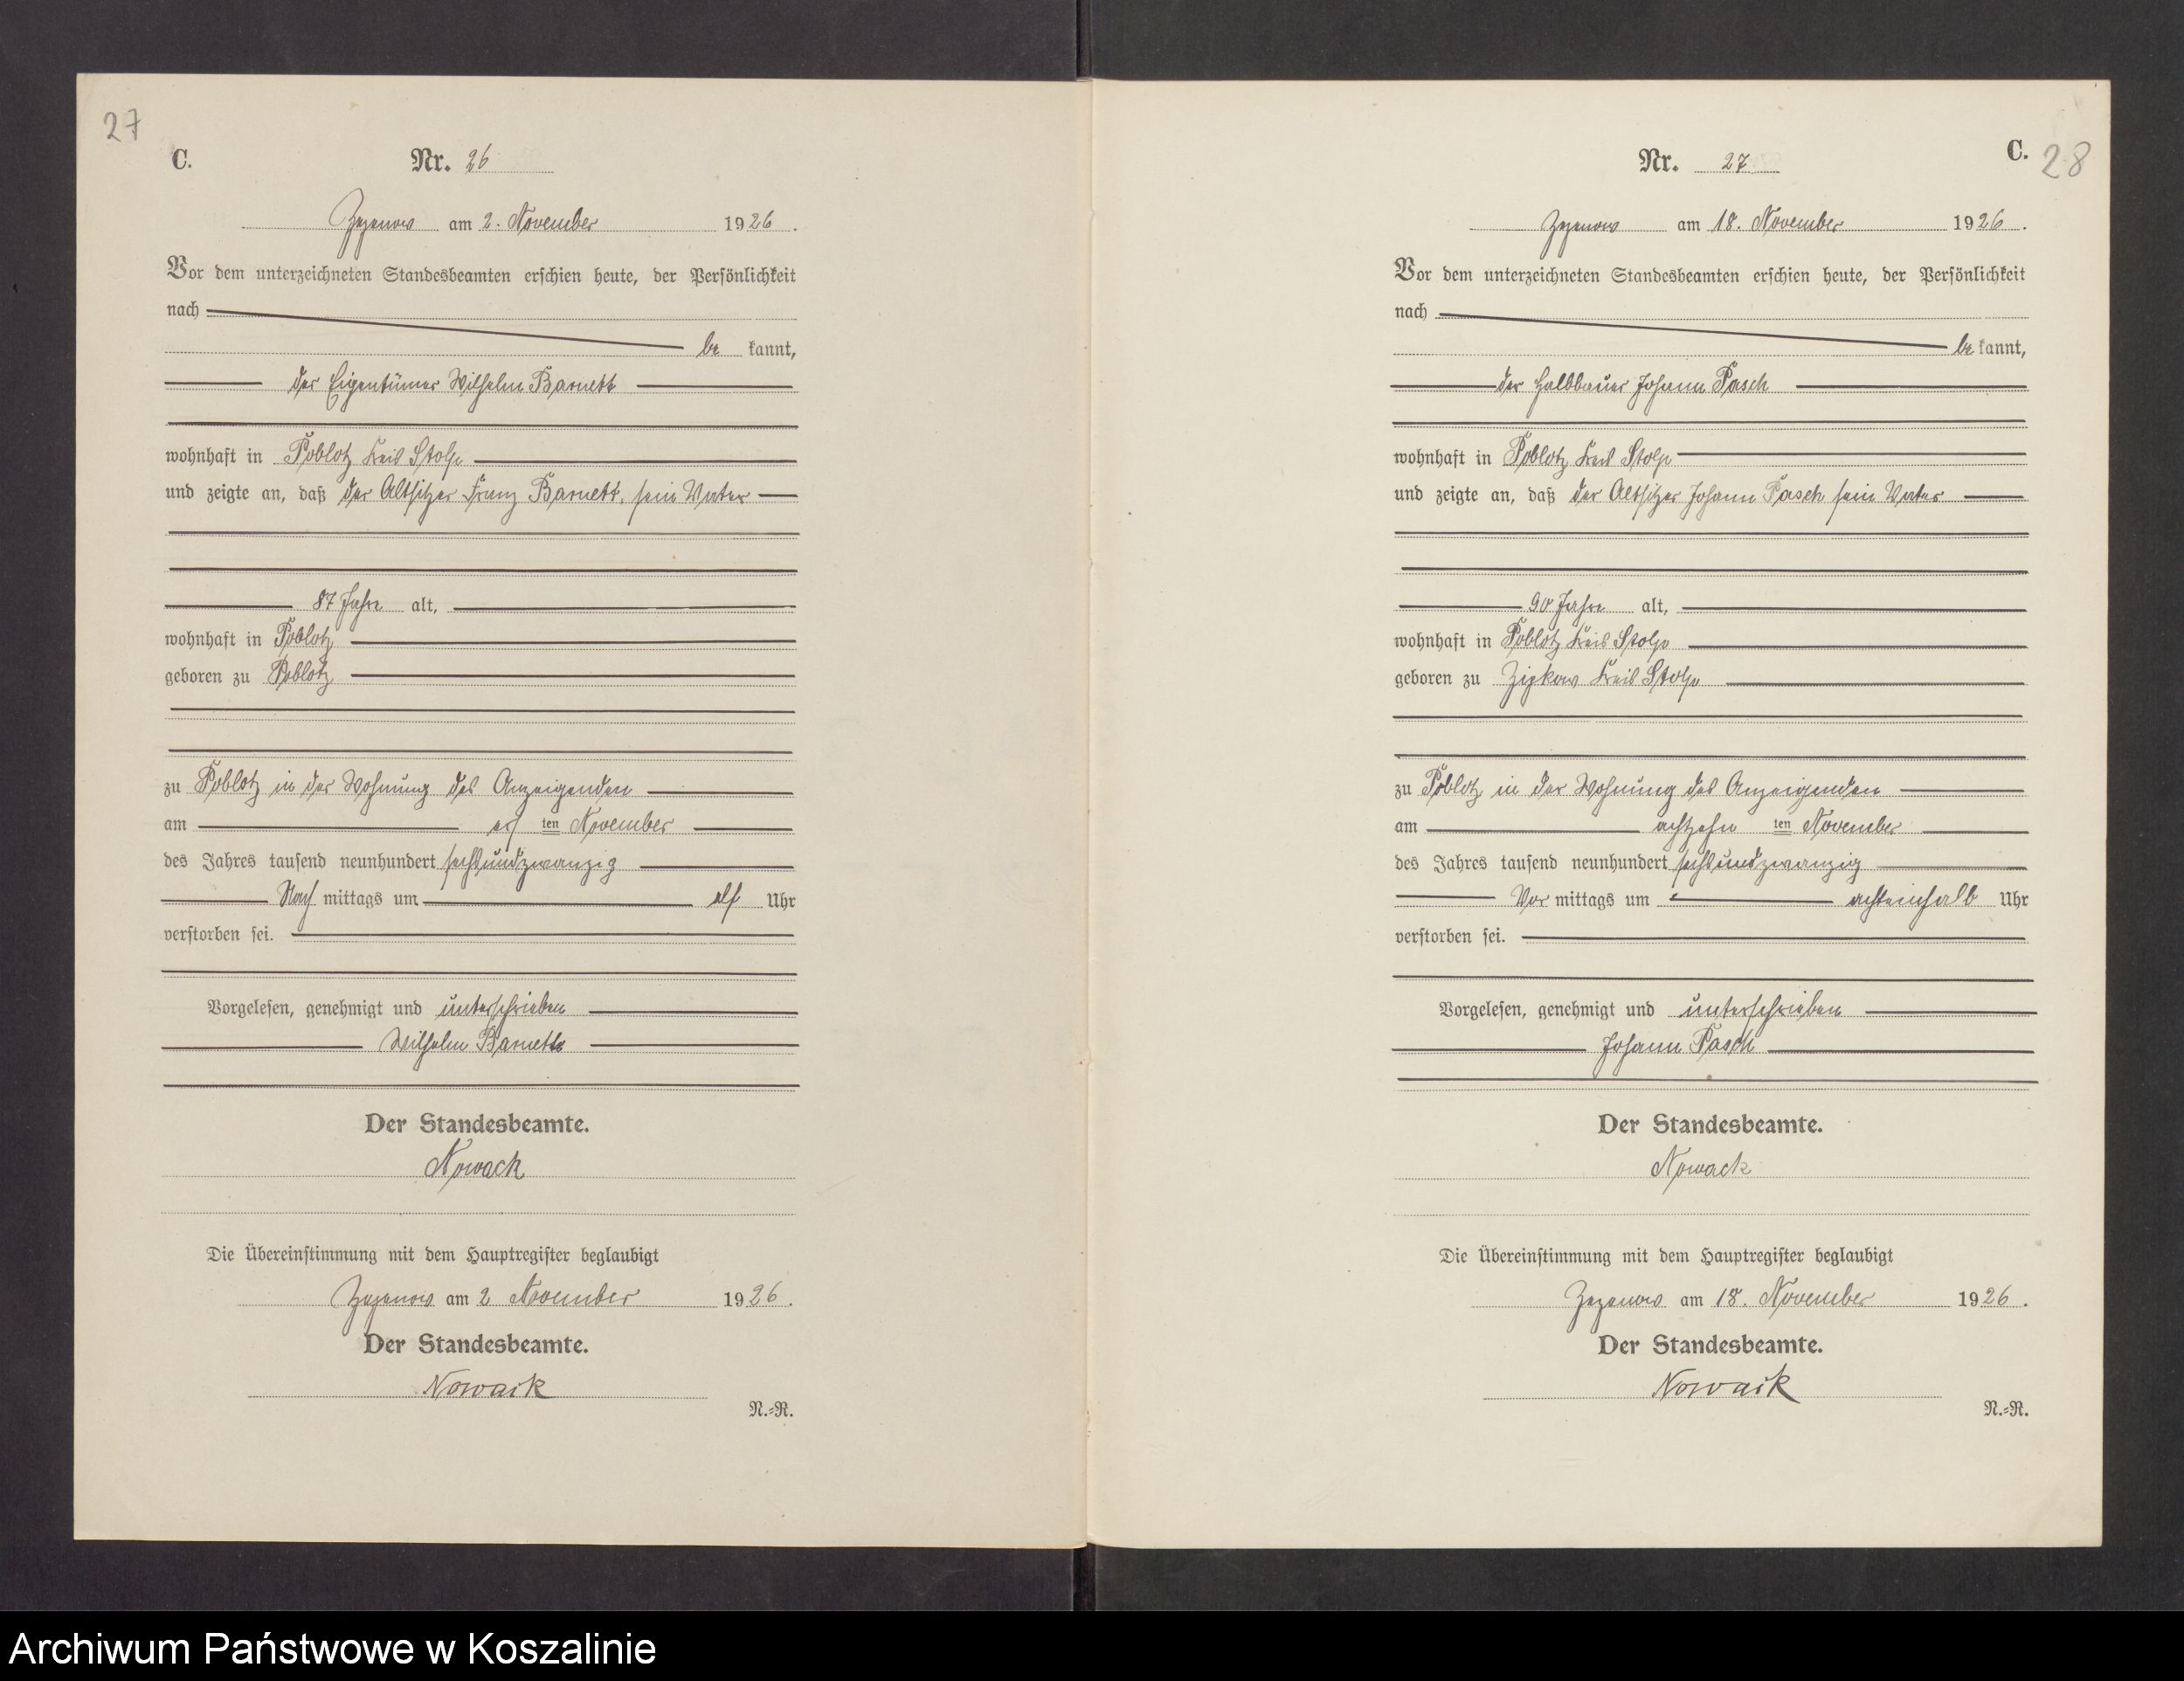 27
C.
Nr. 26
Zezenow am 2. November 1926.
Vor dem unterzeichneten Standesbeamten erschien heute, der Persönlichkeit
nach
be kannt,
der Eigentümer Wilhelm Barnett
wohnhaft in Poblotz Kreis Stolp
und zeigte an, daß der Altsitzer Franz Barnett, sein Vater
87 Jahre alt,
wohnhaft in Poblotz
geboren zu Poblotz
zu Poblotz in der Wohnung des Anzeigenden
am ten November
des Jahres tausend neunhundert sechsundzwanzig
Nach mittags um elf Uhr
verstorben sei.
Vorgelesen, genehmigt und unterschrieben
Wilhelm Barnett
Der Standesbeamte.
Nowack
Die Übereinstimmung mit dem Hauptregister beglaubigt
Zezenow am 2 November 1926.
Der Standesbeamte.
Nowack
N.=R.
C. 28
Nr. 27
Zezenow am 18. November 1926.
Vor dem unterzeichneten Standesbeamten erschien heute, der Persönlichkeit
nach
be kannt,
der Halbbauer Johann Pasch
wohnhaft in Poblotz Kreis Stolp
und zeigte an, daß der Altsitzer Johann Pasch sein Vater
90 Jahre alt,
wohnhaft in Poblotz Kreis Stolp
geboren zu Zipkow Kreis Stolp
zu Poblotz in der Wohnung des Anzeigenden
am achtzehn ten November
des Jahres tausend neunhundert sechsundzwanzig
Vor mittags um achteinhalb Uhr
verstorben sei.
Vorgelesen, genehmigt und unterschrieben
Johann Pasch
Der Standesbeamte.
Nowack
Die Übereinstimmung mit dem Hauptregister beglaubigt
Zezenow am 18. November 1926.
Der Standesbeamte.
Nowack
N.=R.
Archiwum Państwowe w Koszalinie